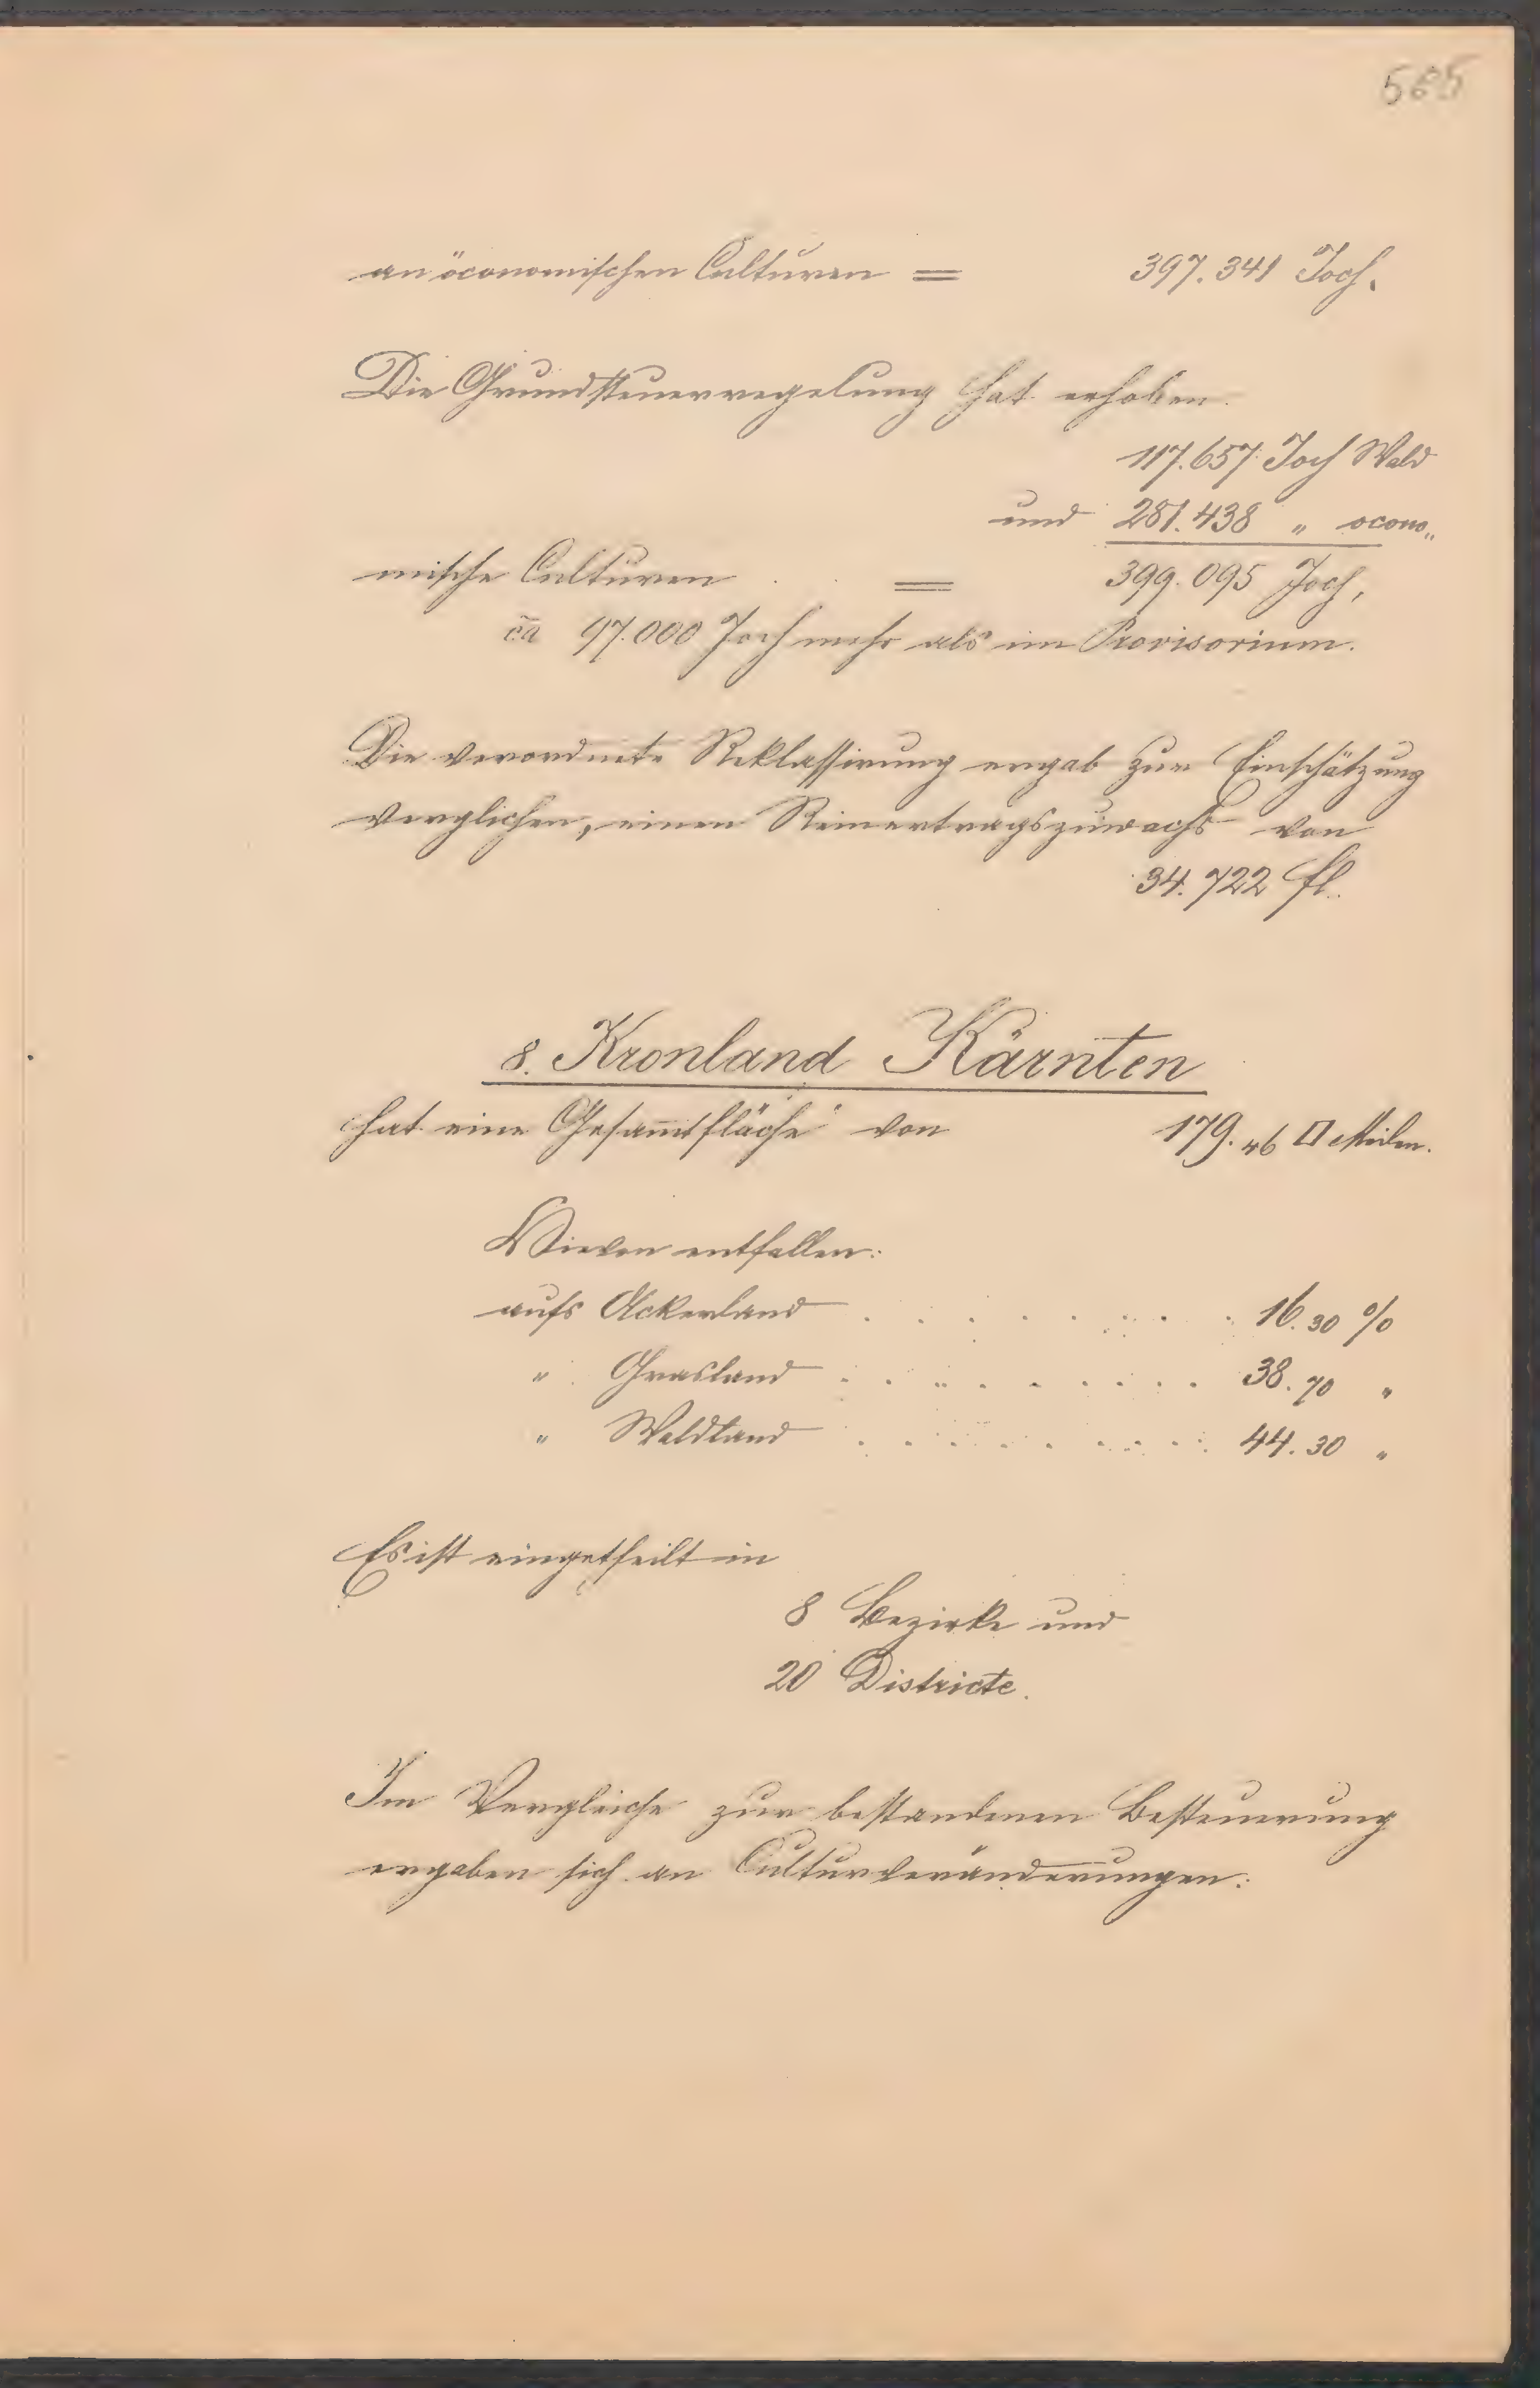 505
an öconomischen Culturen = 397.341 Joch.
Die Grundsteuerregelung hat erhoben
117.657 Joch Wald
und 281.438 " ocono„
mische Culturen = 399.095 Joch,
ca 97.000 Joch mehr als im Provisorium.
Die verordnete Reklassirung ergab zur Einschätzung
verglichen, einen Reinertragszuwachs von
34.722 fl.
8. Kronland Kärnten
hat eine Gesammtfläche von 179.46 □ Meilen.
Hievon entfallen:
aufs Ackerland . . . . . . . . 16.30 %
" Grasland . . . . . . . . 38.70 "
" Waldland . . . . . . . . 44.30 "
Es ist eingetheilt in
8 Bezirke und
20 Districte.
Im Vergleiche zur bestandenen Besteuerung
ergaben sich an Culturveränderungen: